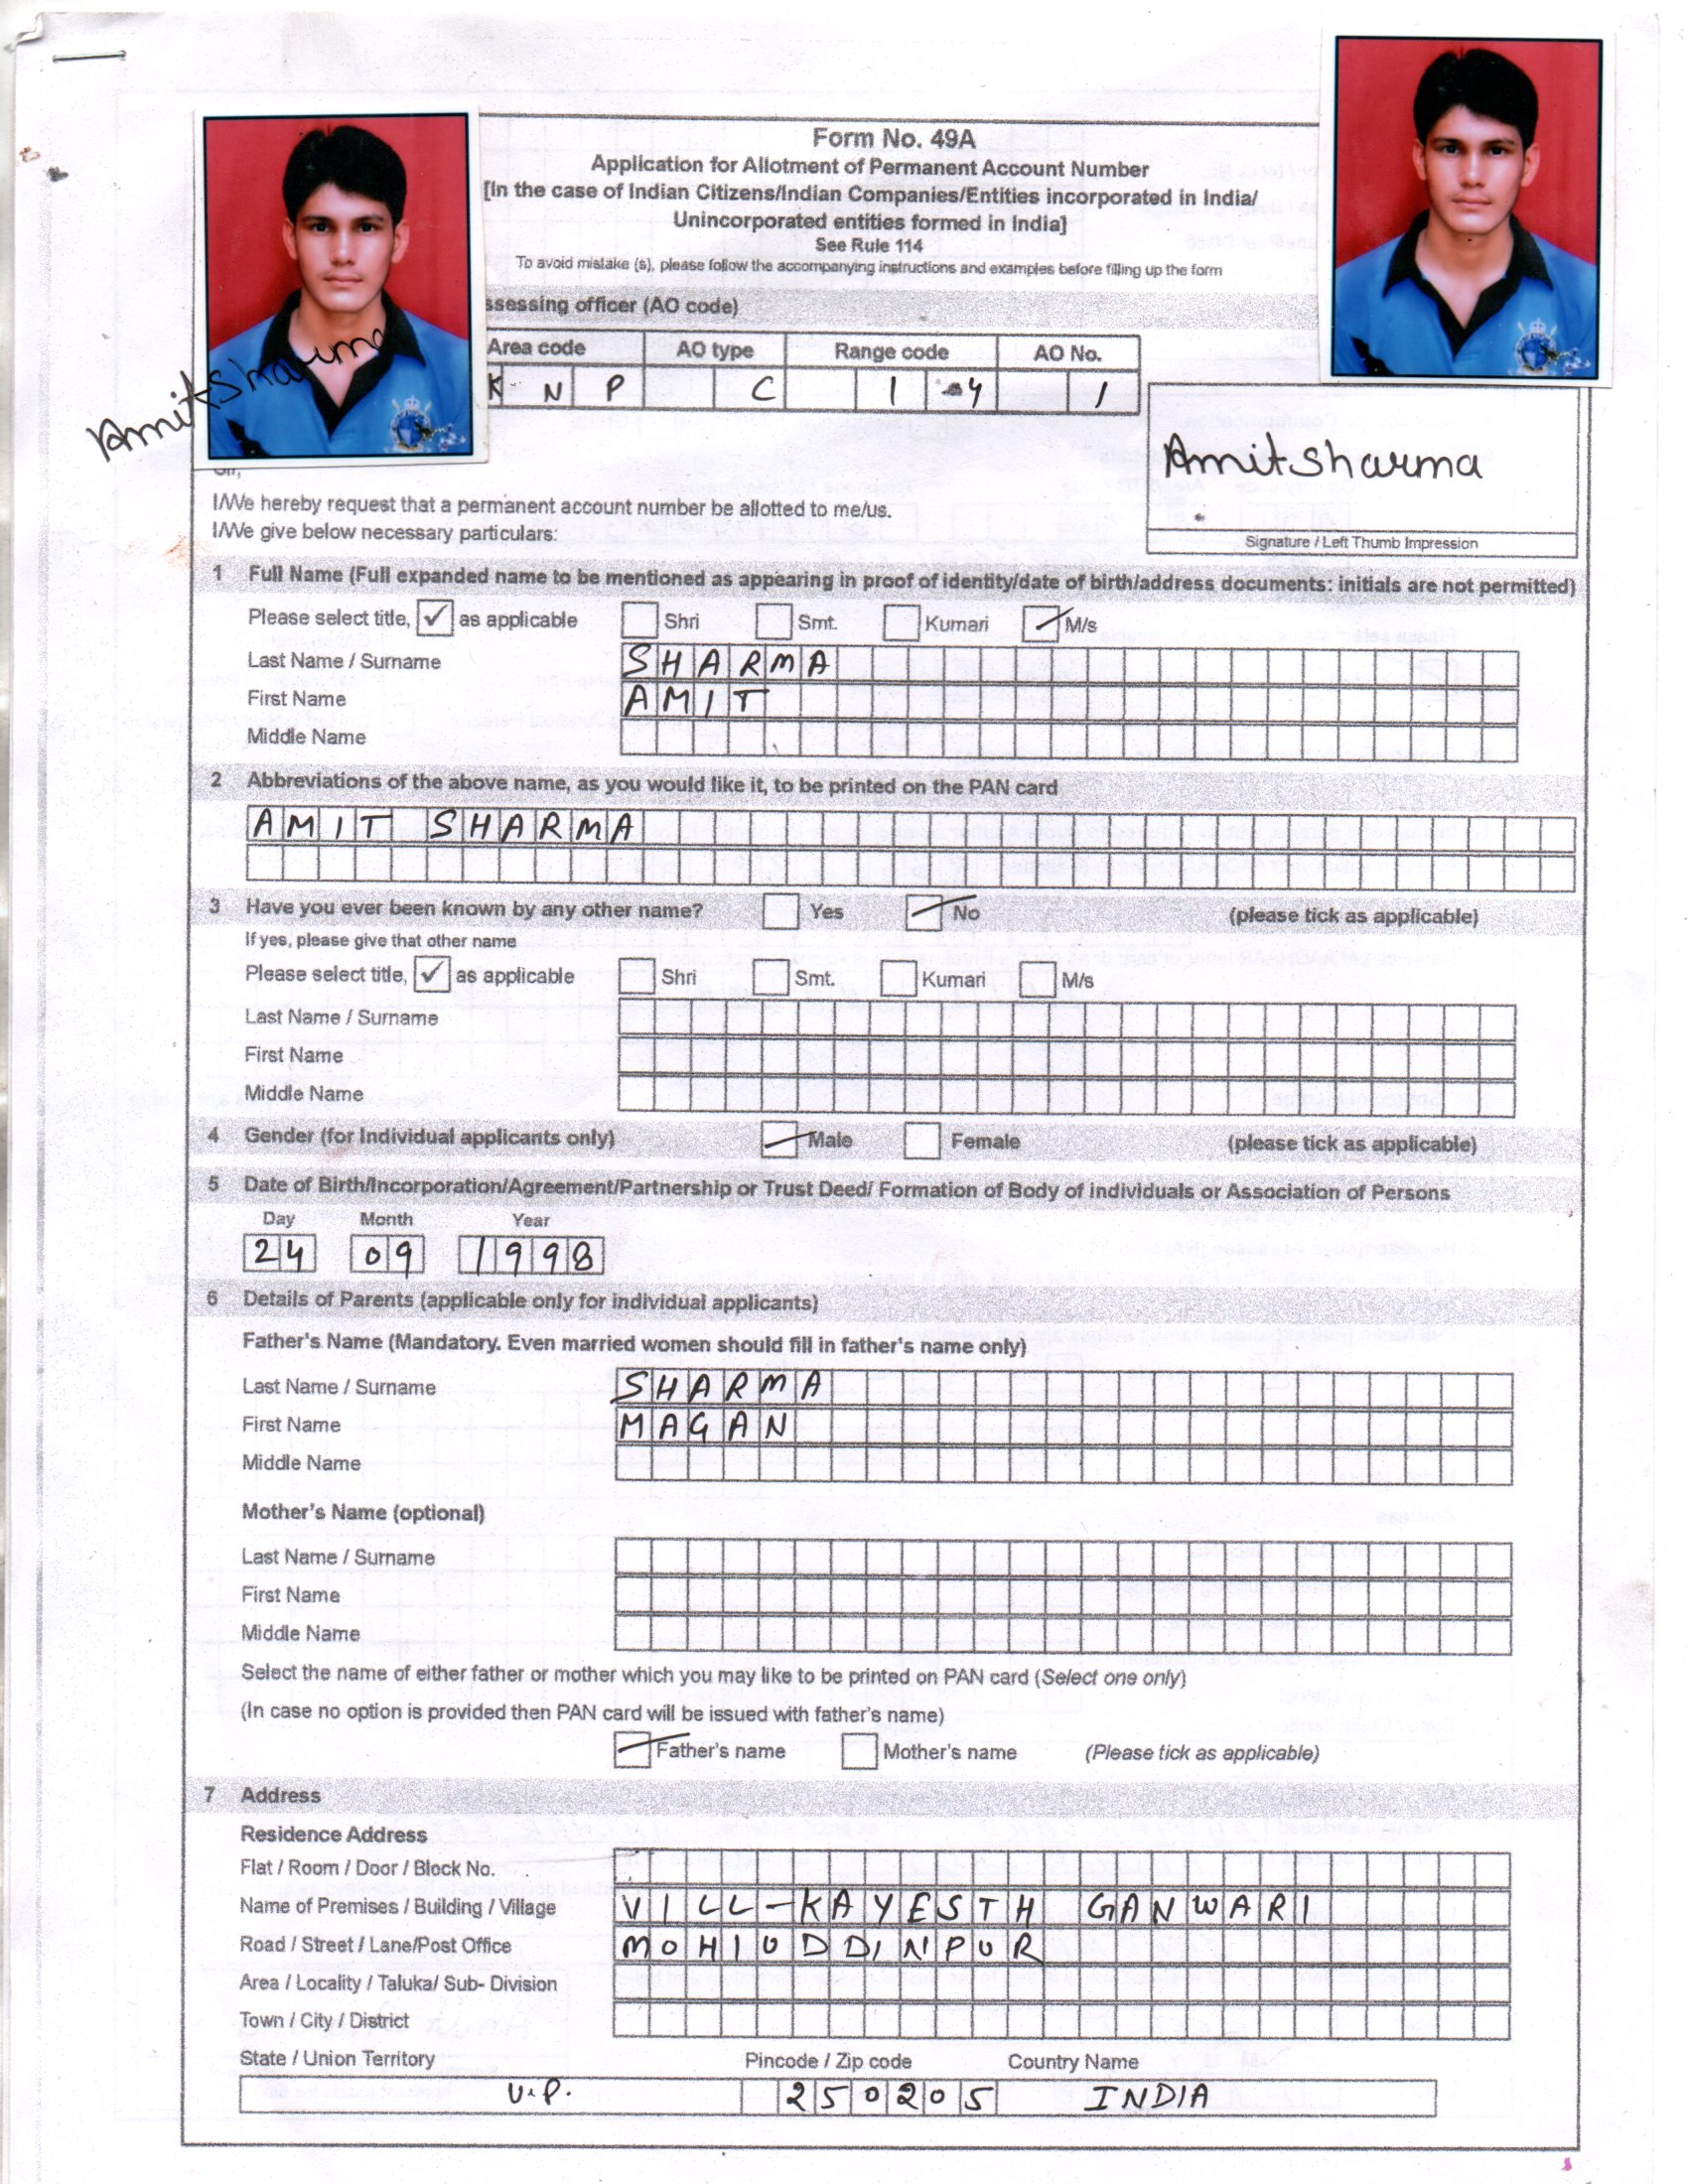 Form No. 49A
Application for Allotment of Permanent Account Number
[In the case of Indian Citizens/Indian Companies/Entities incorporated in India/
Unincorporated entities formed in India]
See Rule 114
To avoid mistake (s), please follow the accompanying instructions and examples before filling up the form
ssessing officer (AO code)
Area code AO type Range code AO No.
K N P C 1 4 1
Amit Sharma
Amit Sharma
Signature / Left Thumb Impression
Sir,
I/We hereby request that a permanent account number be allotted to me/us.
I/We give below necessary particulars:
1 Full Name (Full expanded name to be mentioned as appearing in proof of identity/date of birth/address documents: initials are not permitted)
Please select title, ✓ as applicable Shri Smt. Kumari M/s
Last Name / Surname SHARMA
First Name AMIT
Middle Name
2 Abbreviations of the above name, as you would like it, to be printed on the PAN card
AMIT SHARMA
3 Have you ever been known by any other name? Yes No (please tick as applicable)
If yes, please give that other name
Please select title, ✓ as applicable Shri Smt. Kumari M/s
Last Name / Surname
First Name
Middle Name
4 Gender (for Individual applicants only) Male Female (please tick as applicable)
5 Date of Birth/Incorporation/Agreement/Partnership or Trust Deed/ Formation of Body of individuals or Association of Persons
Day Month Year
24 09 1998
6 Details of Parents (applicable only for individual applicants)
Father's Name (Mandatory. Even married women should fill in father's name only)
Last Name / Surname SHARMA
First Name MAGAN
Middle Name
Mother's Name (optional)
Last Name / Surname
First Name
Middle Name
Select the name of either father or mother which you may like to be printed on PAN card (Select one only)
(In case no option is provided then PAN card will be issued with father's name)
Father's name Mother's name (Please tick as applicable)
7 Address
Residence Address
Flat / Room / Door / Block No.
Name of Premises / Building / Village VILL-KAYESTH GANWARI
Road / Street / Lane/Post Office MOHIUDDINPUR
Area / Locality / Taluka/ Sub- Division
Town / City / District
State / Union Territory Pincode / Zip code Country Name
U.P. 250205 INDIA